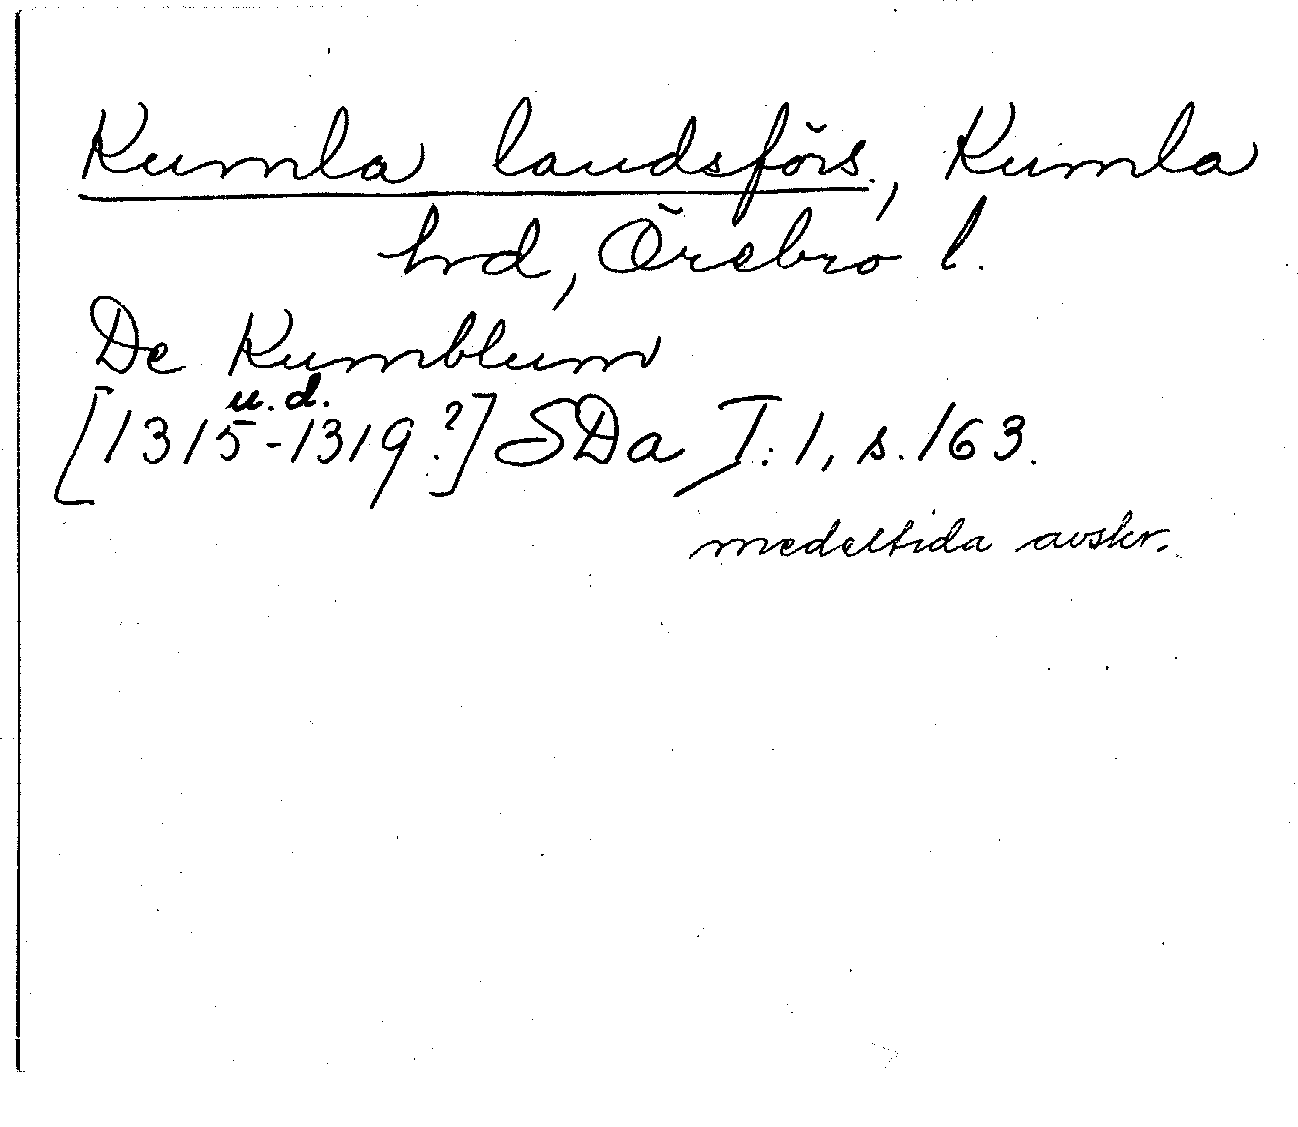 Kumla landsförs., Kumla
hrd, Örebro l.
De Kumblum
u.d.
[1315-1319?] SDa I:1, s. 163.
medeltida avskr.